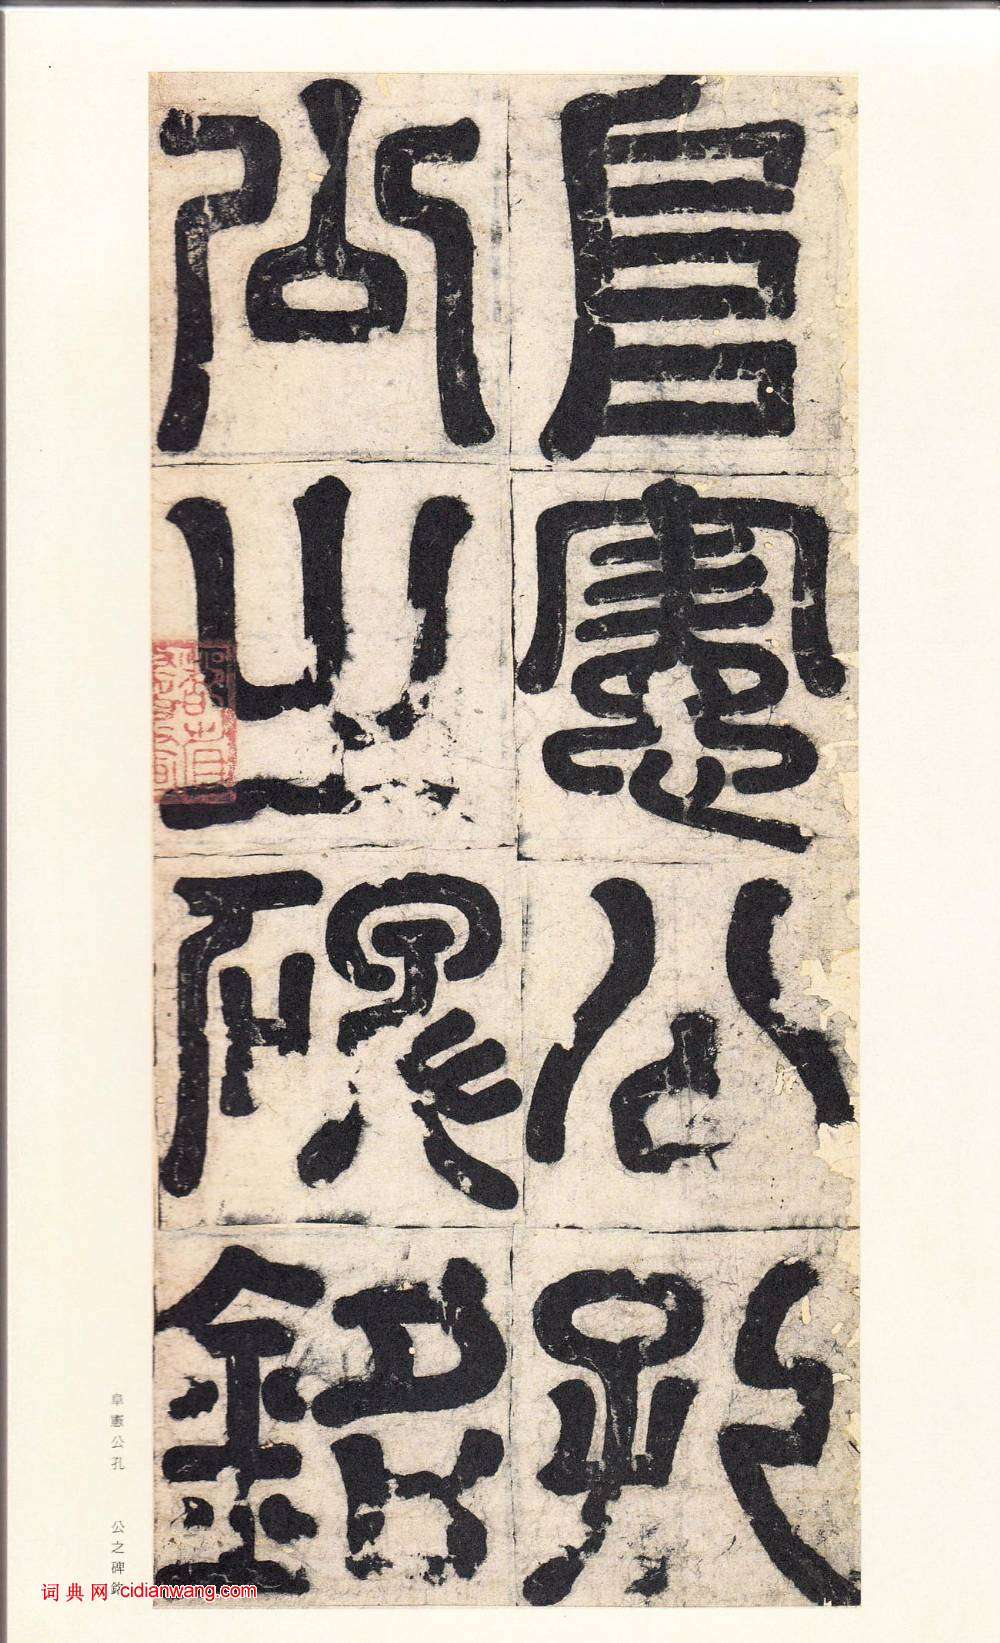 阜憲公孔
公之碑銘
阜憲公孔 公之碑銘
词典网:cidianwang.com